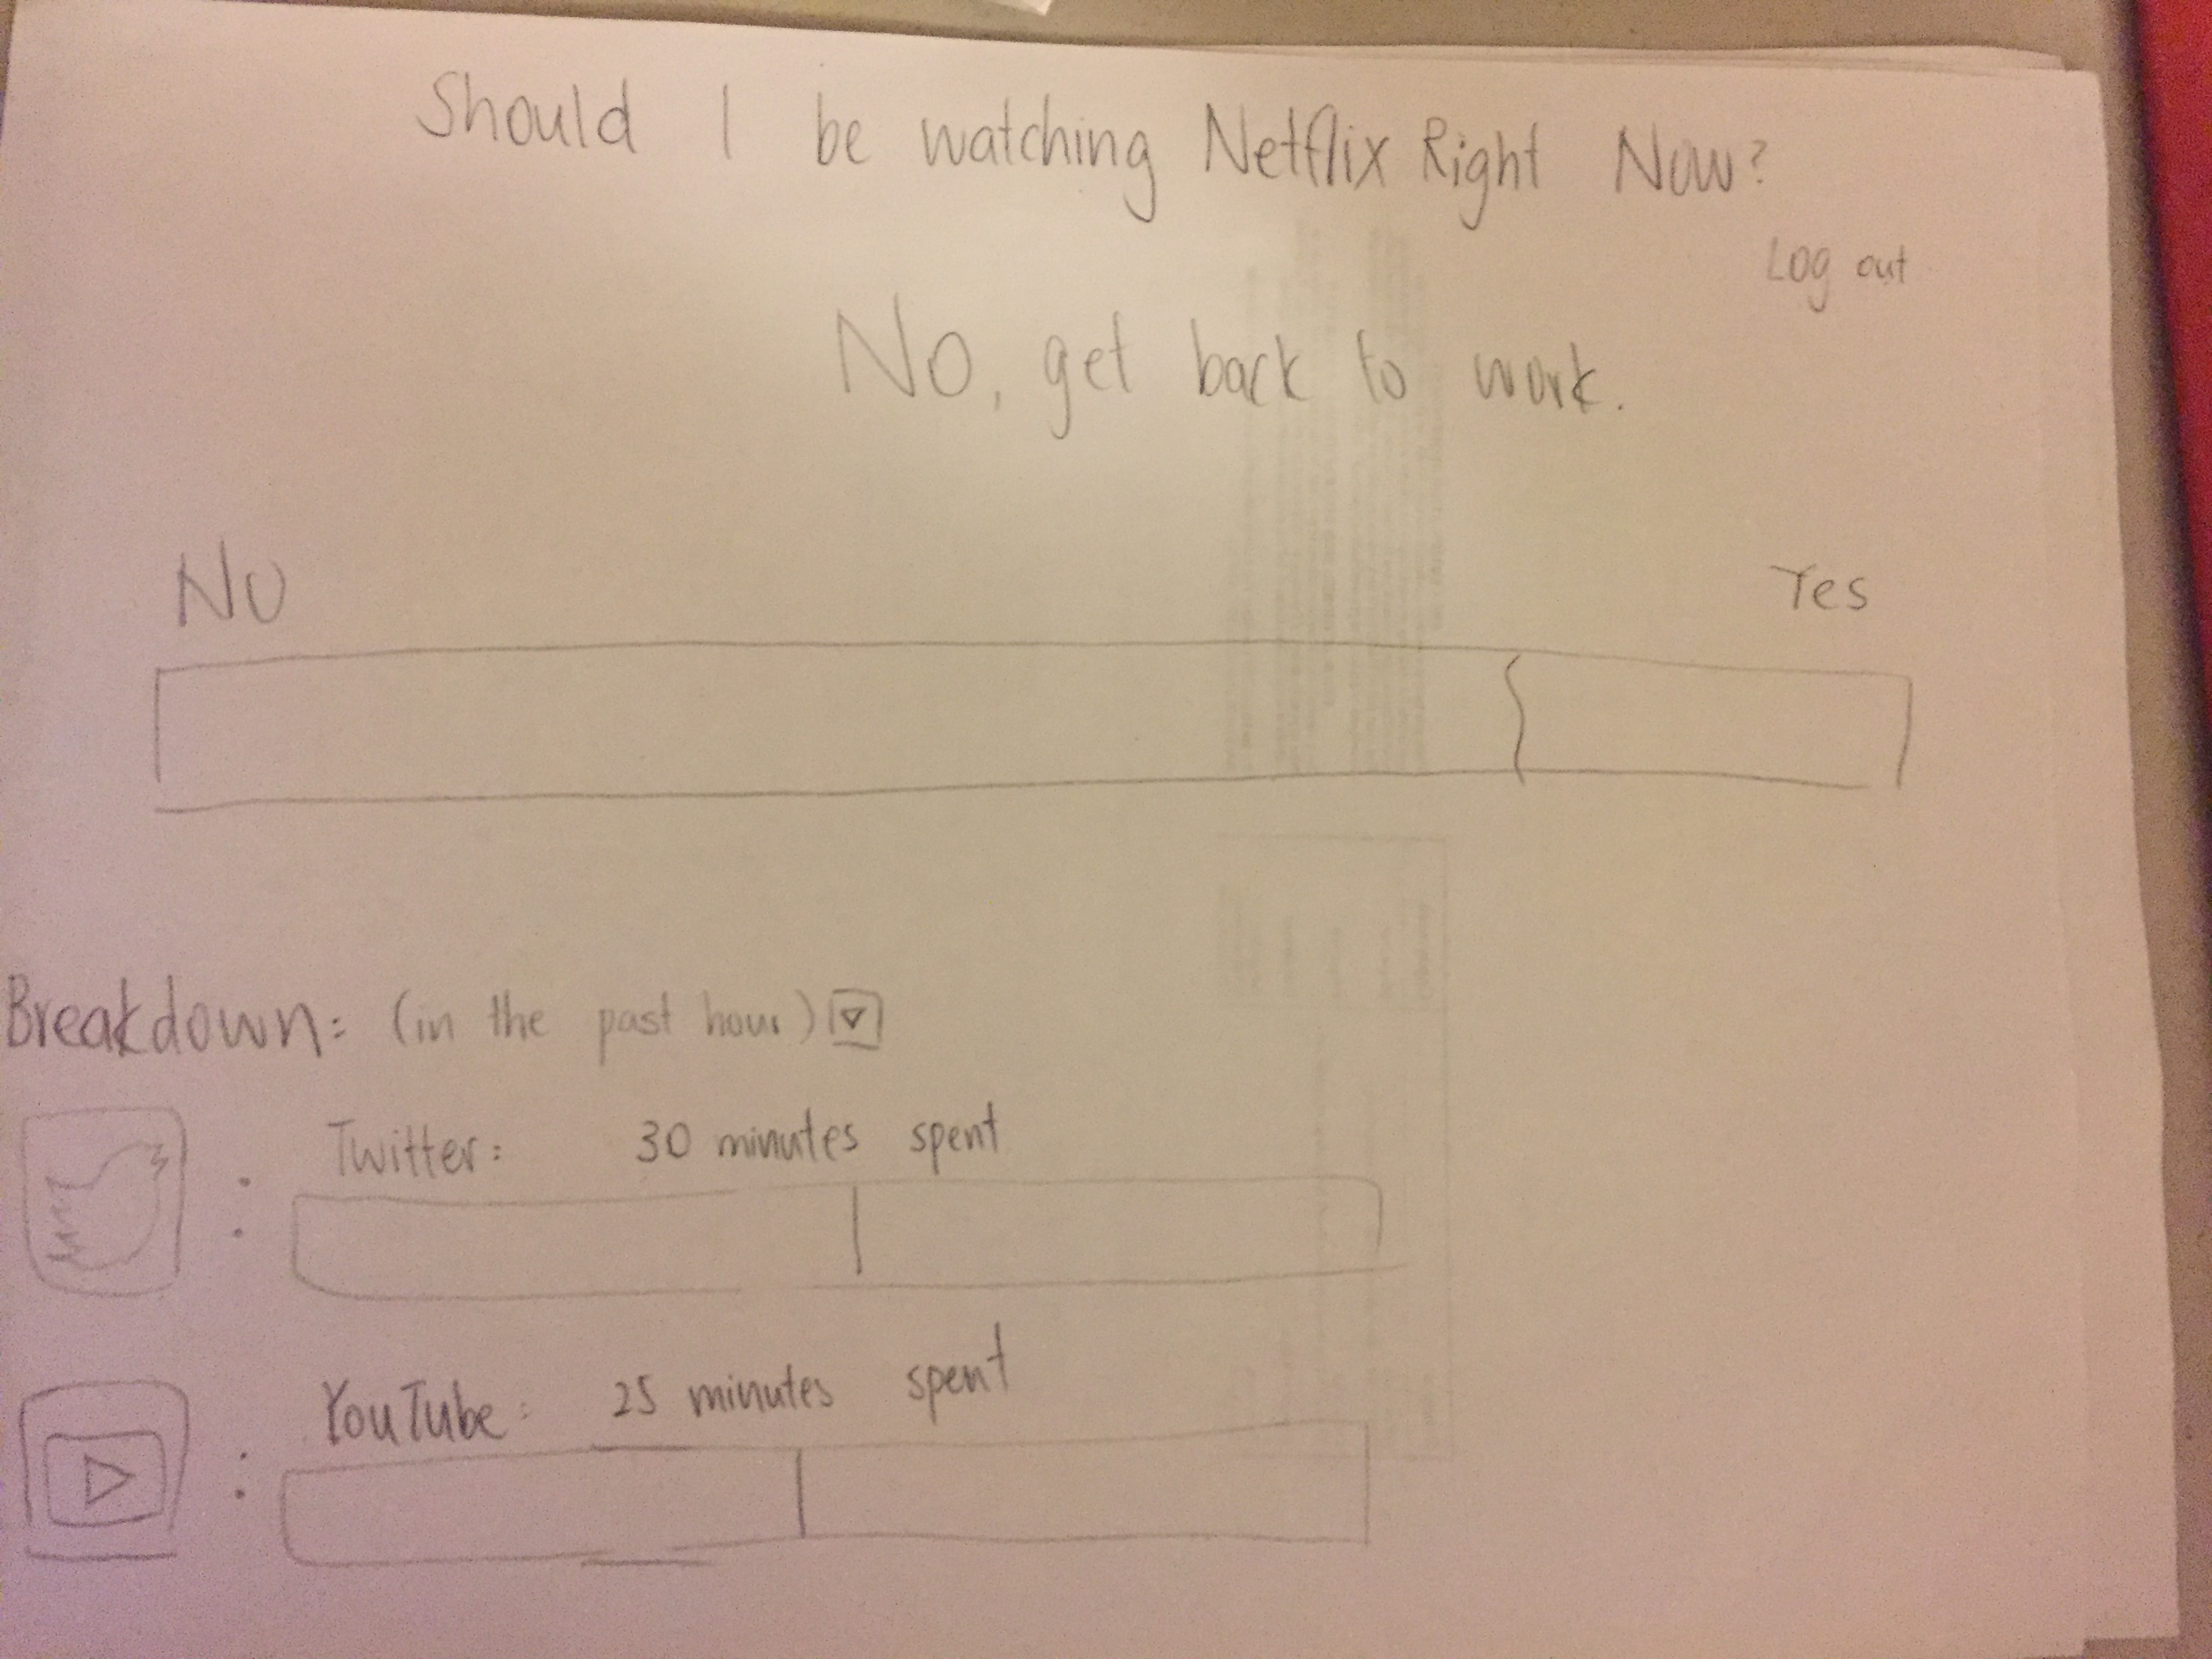 Should I be watching Netflix Right Now?
Log out
No, get back to work.
No Yes
Breakdown: (in the past hour)
Twitter: 30 minutes spent
:
YouTube: 25 minutes spent
: